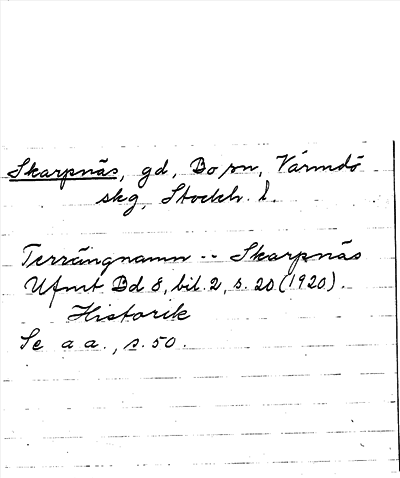 Skarpnäs, gd, Bo sn, Värmdö
skg, Stockh. l.
Terrängnamn -- Skarpnäs
Ufmt Bd 8, bil. 2, s. 20 (1920).
Historik
Se a a., s. 50.